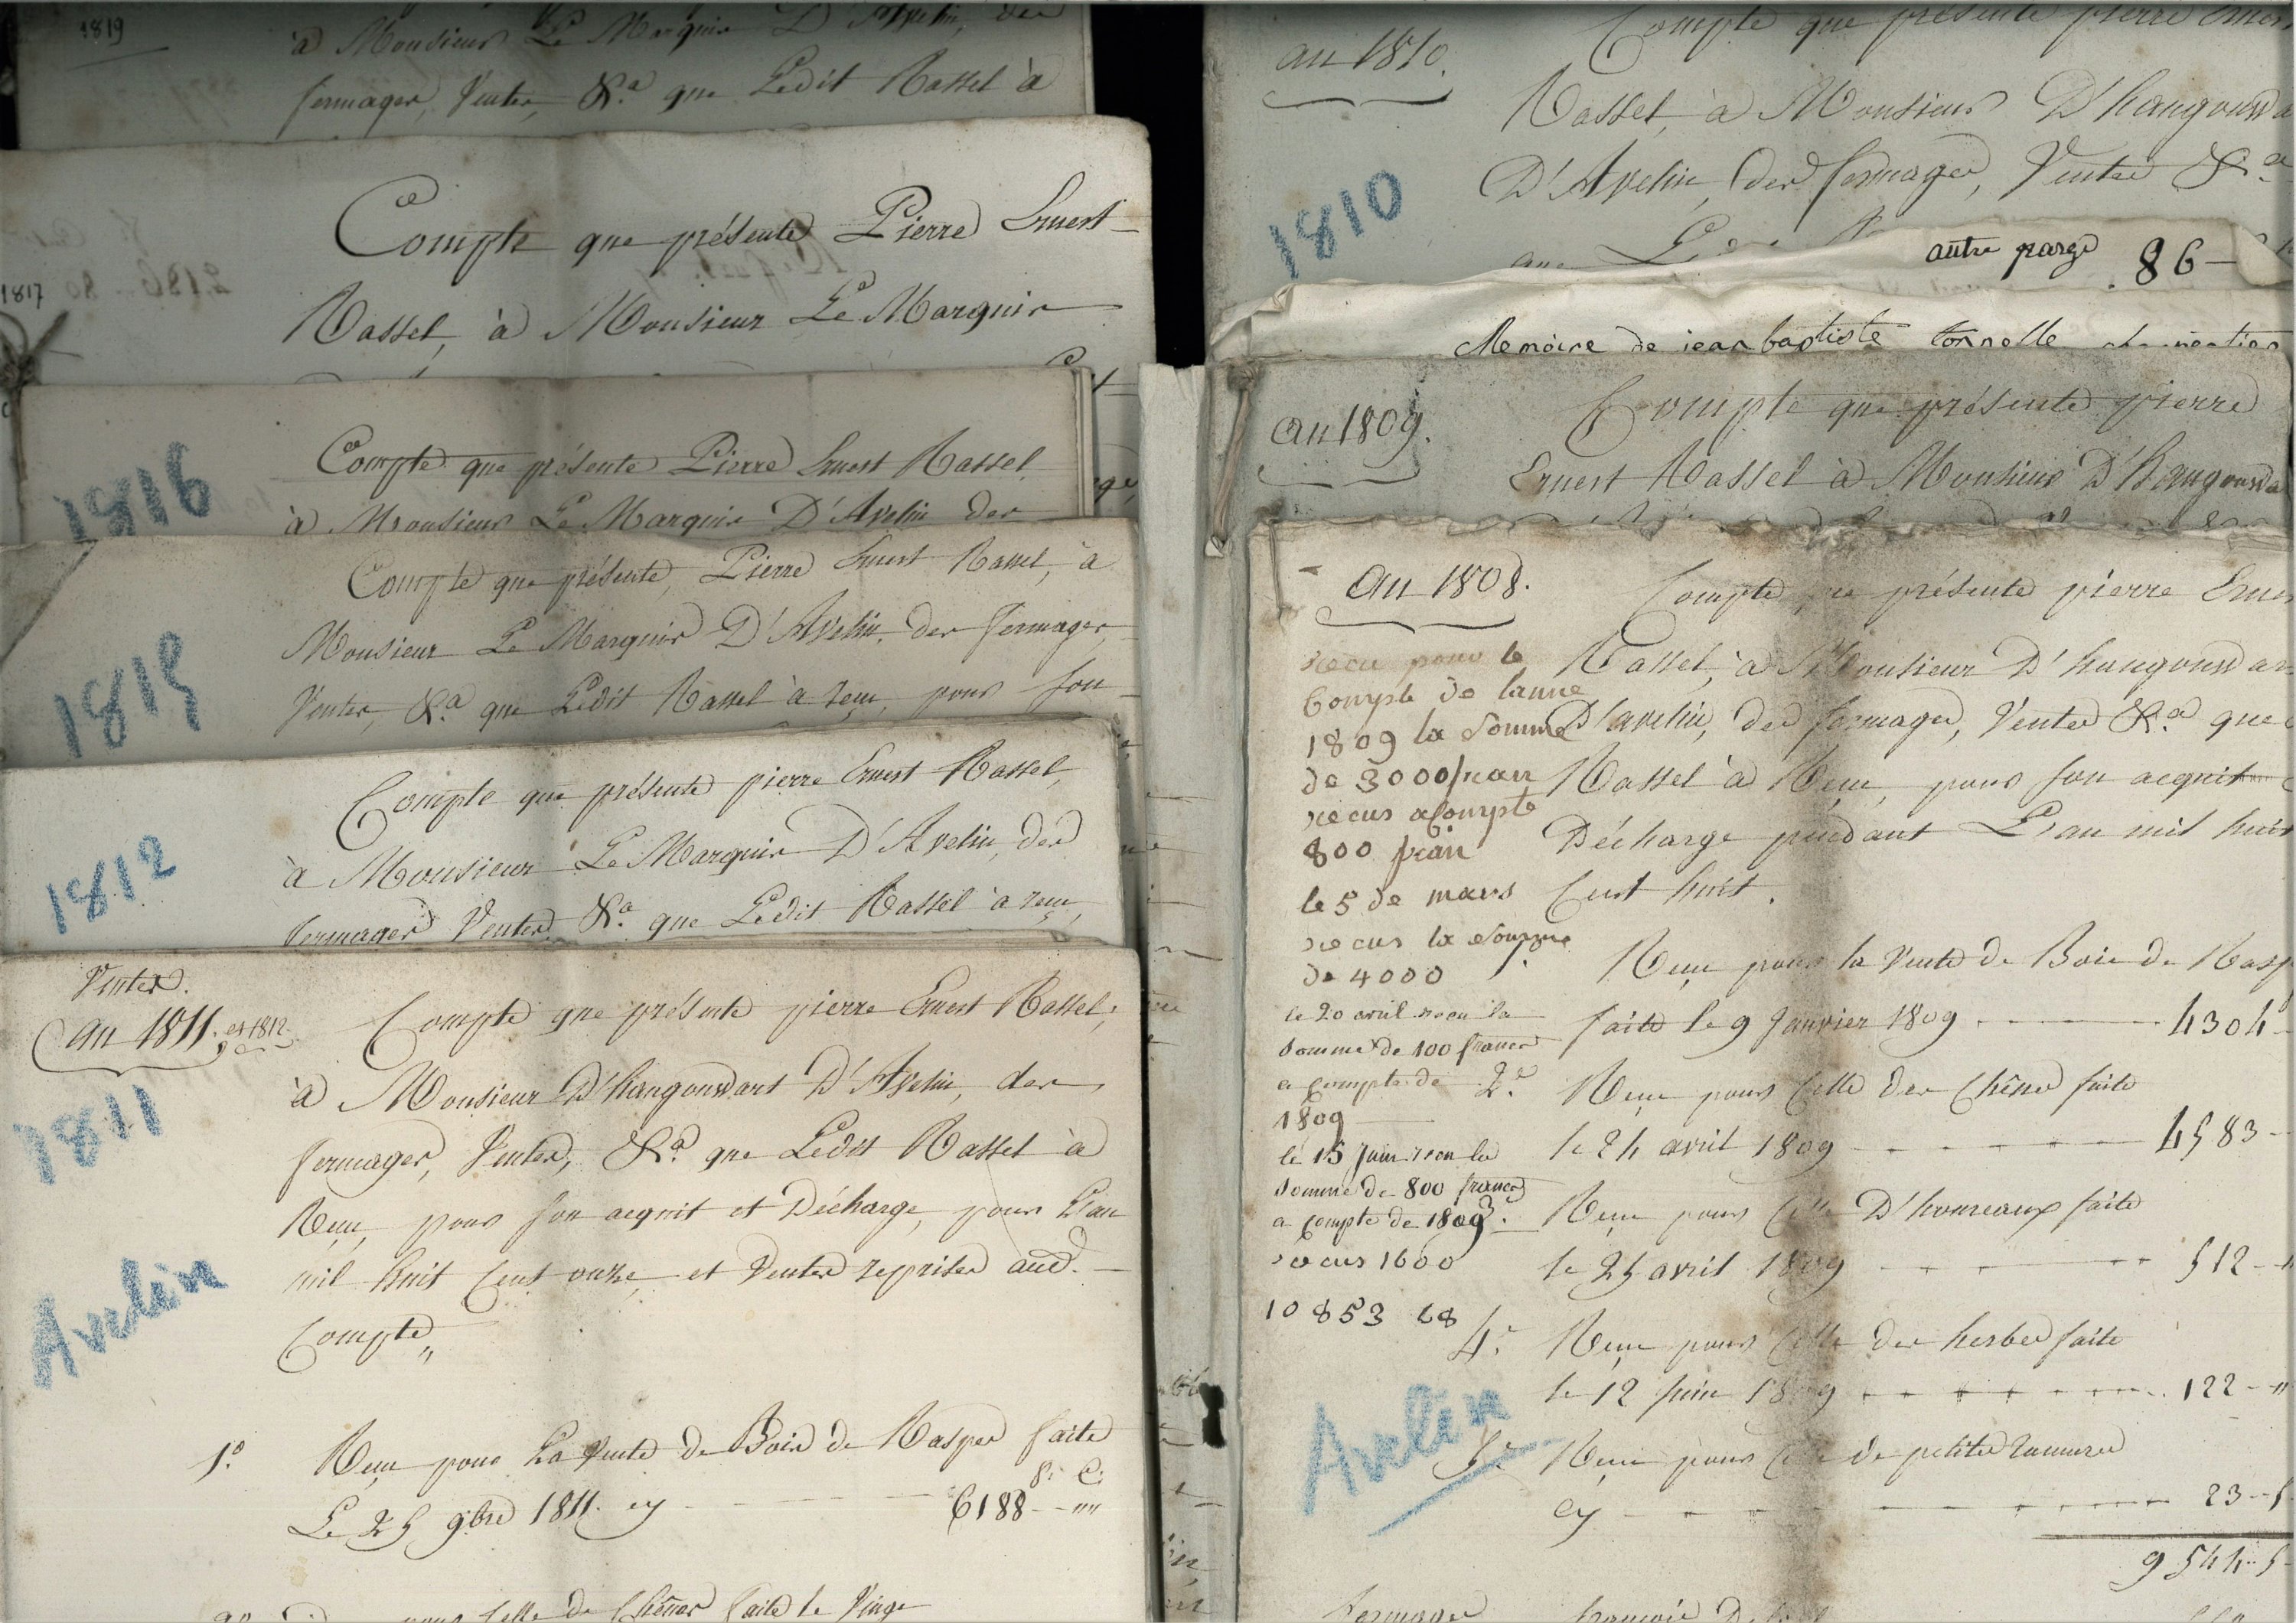 1819
à Monsieur Le Marquis D'Avelin, des
fermages, Ventes, &.a que Ledit Rassel à
Compte que présente Pierre Ernest
Rassel, à Monsieur Le Marquis
1817
1816
Compte que présente Pierre Ernest Rassel
à Monsieur Le Marquis D'Avelin des
1815
Compte que présente, Pierre Ernest Rassel, à
Monsieur Le Marquis D'Avelin, des fermages,
Ventes, &.a que Ledit Rassel à reçu, pour son
1812
Compte que présente pierre Ernest Rassel,
à Monsieur Le Marquis D'Avelin, des
fermages Ventes &.a que Ledit Rassel à reçu,
Ventes.
an 1811. et 1812.
1811
Avelin
Compte que présente pierre Ernest Rassel,
à Monsieur D'hangouwart D'Avelin, des
fermages, Ventes, &.a que Ledit Rassel à
Reçu, pour son acquit et Décharge, pour L'an
mil huit Cent onze, et Ventes reprises aud.
Compte,,
1.° Reçu pour La Vente de Bois de Raspes faite
f. C.
Le 25 9bre 1811. cy 6188 - ""
pour Celle de Chênes faite le Vingt
an 1810.
1810
Compte que présente pierre Ernes
Rassel, à Monsieur D'hangouwa
D'Avelin, des fermages, Ventes &.a
autre parge 86 -
Memoire de iean baptiste
an 1809.
Compte que présente pierre
Ernest Rassel à Monsieur D'hangouwa
an 1808.
Compte que présente pierre Ernes
Rassel, à Monsieur D'hangouwar
D'avelin, des fermages, Ventes &.a que
Rassel à Reçu, pour son acquit
Décharge pendant L'an mil huit
Cent huit.
recu pour le
Compte de lanne
1809 la somme
de 3000 fran
recus a Compte
800 fran
le 5 de mars
recus la somme
de 4000
le 20 avril recu la
somme de 100 francs
a compte de
1809
le 15 juin recu la
somme de 800 francs
a compte de 1809
recus 1600
10853 68
Avelin
Reçu pour la Vente de Bois de Rasp
faite le 9 Janvier 1809 4304
2.e Reçu pour Celle des Chênes faite
le 24 avril 1809 4583 -
3. Reçu pour Celle D'hormeaux faite
le 25 avril 1809 512 - "
4.e Reçu pour Celle des herbes faite
le 12 Juin 1809 122 - "
5.e Reçu pour Celle de petites ramures
Cy 23 - 5
9544 - 5